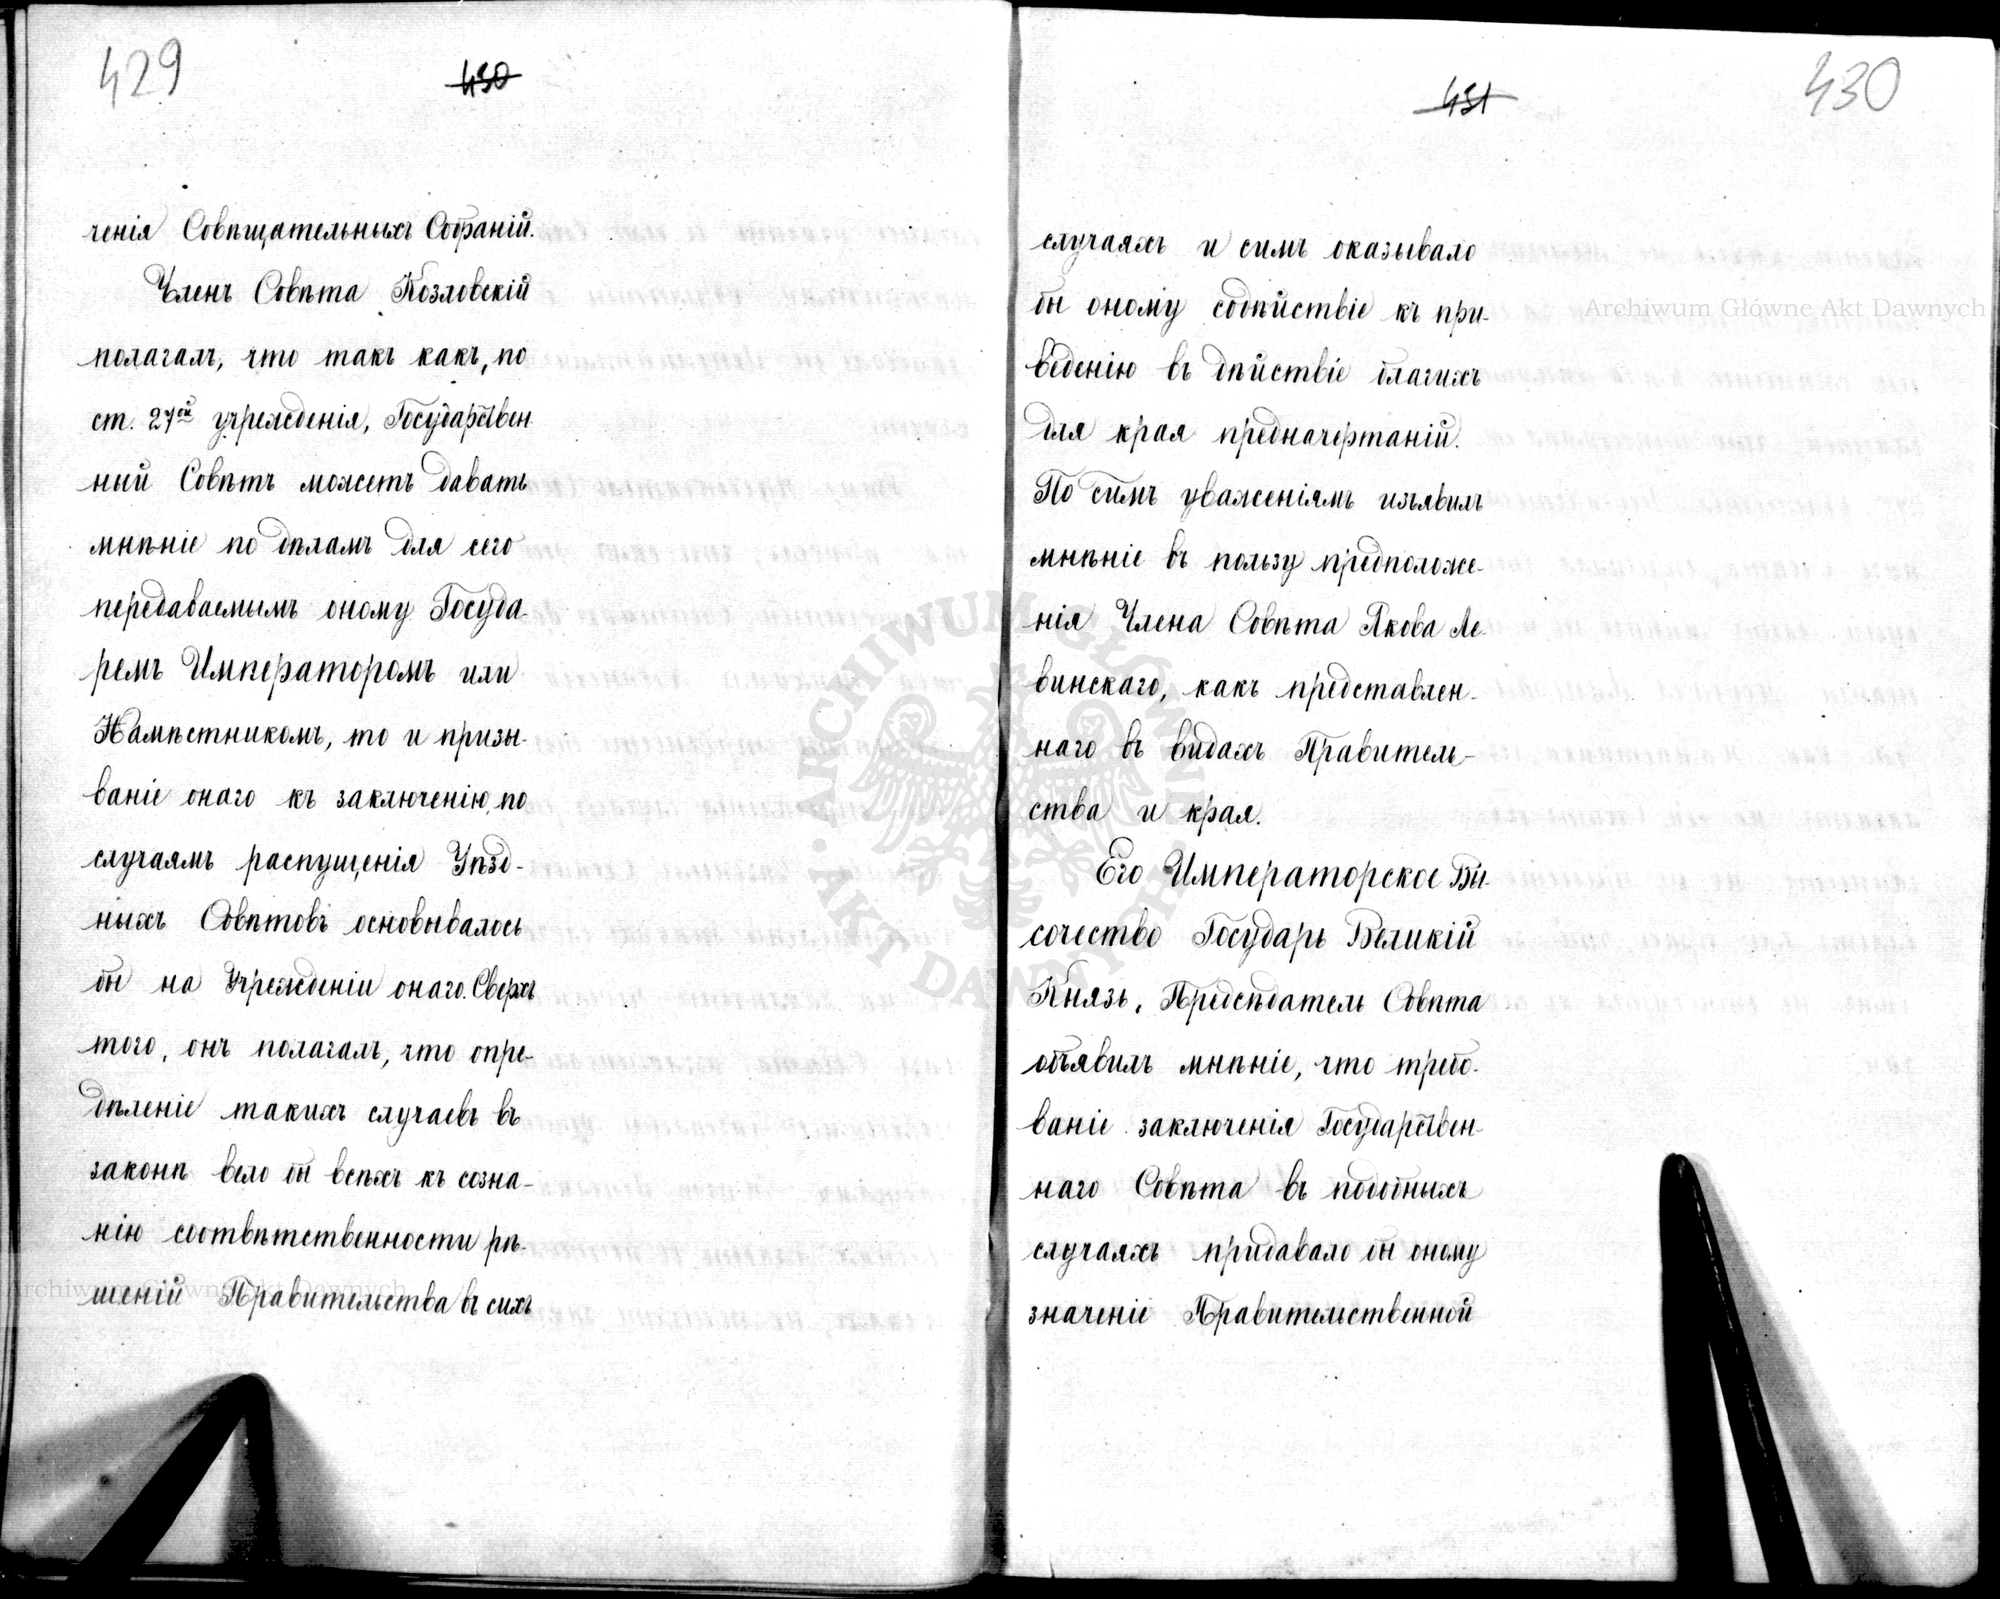 429
430
ченія Совѣщательныхъ Собраній.
Членъ Совѣта Козловскій
полагалъ, что такъ какъ, по
ст. 27ой учрежденія, Государствен
ный Совѣтъ можетъ давать
мнѣніе по дѣламъ для сего
передаваемымъ оному Госуда-
ремъ Императоромъ или
Намѣстникомъ, то и призы-
ваніе онаго къ заключенію, по
случаямъ распущенія Уѣзд-
ныхъ Совѣтовъ основывалось
бы на Учрежденіи онаго. Сверхъ
того, онъ полагалъ, что опре-
дѣленіе такихъ случаевъ въ
законѣ вело бы всѣхъ къ созна-
нію соотвѣтственности рѣ-
шеній Правительства въ сихъ
431
430
случаяхъ и симъ оказывало
бы оному содѣйствіе къ при-
веденію въ дѣйствіе благихъ
для края предначертаній.
По симъ уваженіямъ изъявилъ
мнѣніе въ пользу предположе-
нія Члена Совѣта Якова Ле-
винскаго, какъ представлен-
наго въ видахъ Правитель-
ства и края.
Его Императорское Вы-
сочество Государь Великій
Князь, Предсѣдатель Совѣта
объявилъ мнѣніе, что требо-
ваніе заключенія Государствен-
наго Совѣта въ подобныхъ
случаяхъ придавало бы оному
значеніе Правительственной
Archiwum Główne Akt Dawnych
Archiwum Główne Akt Dawnych
ARCHIWUM GŁÓWNE AKT DAWNYCH